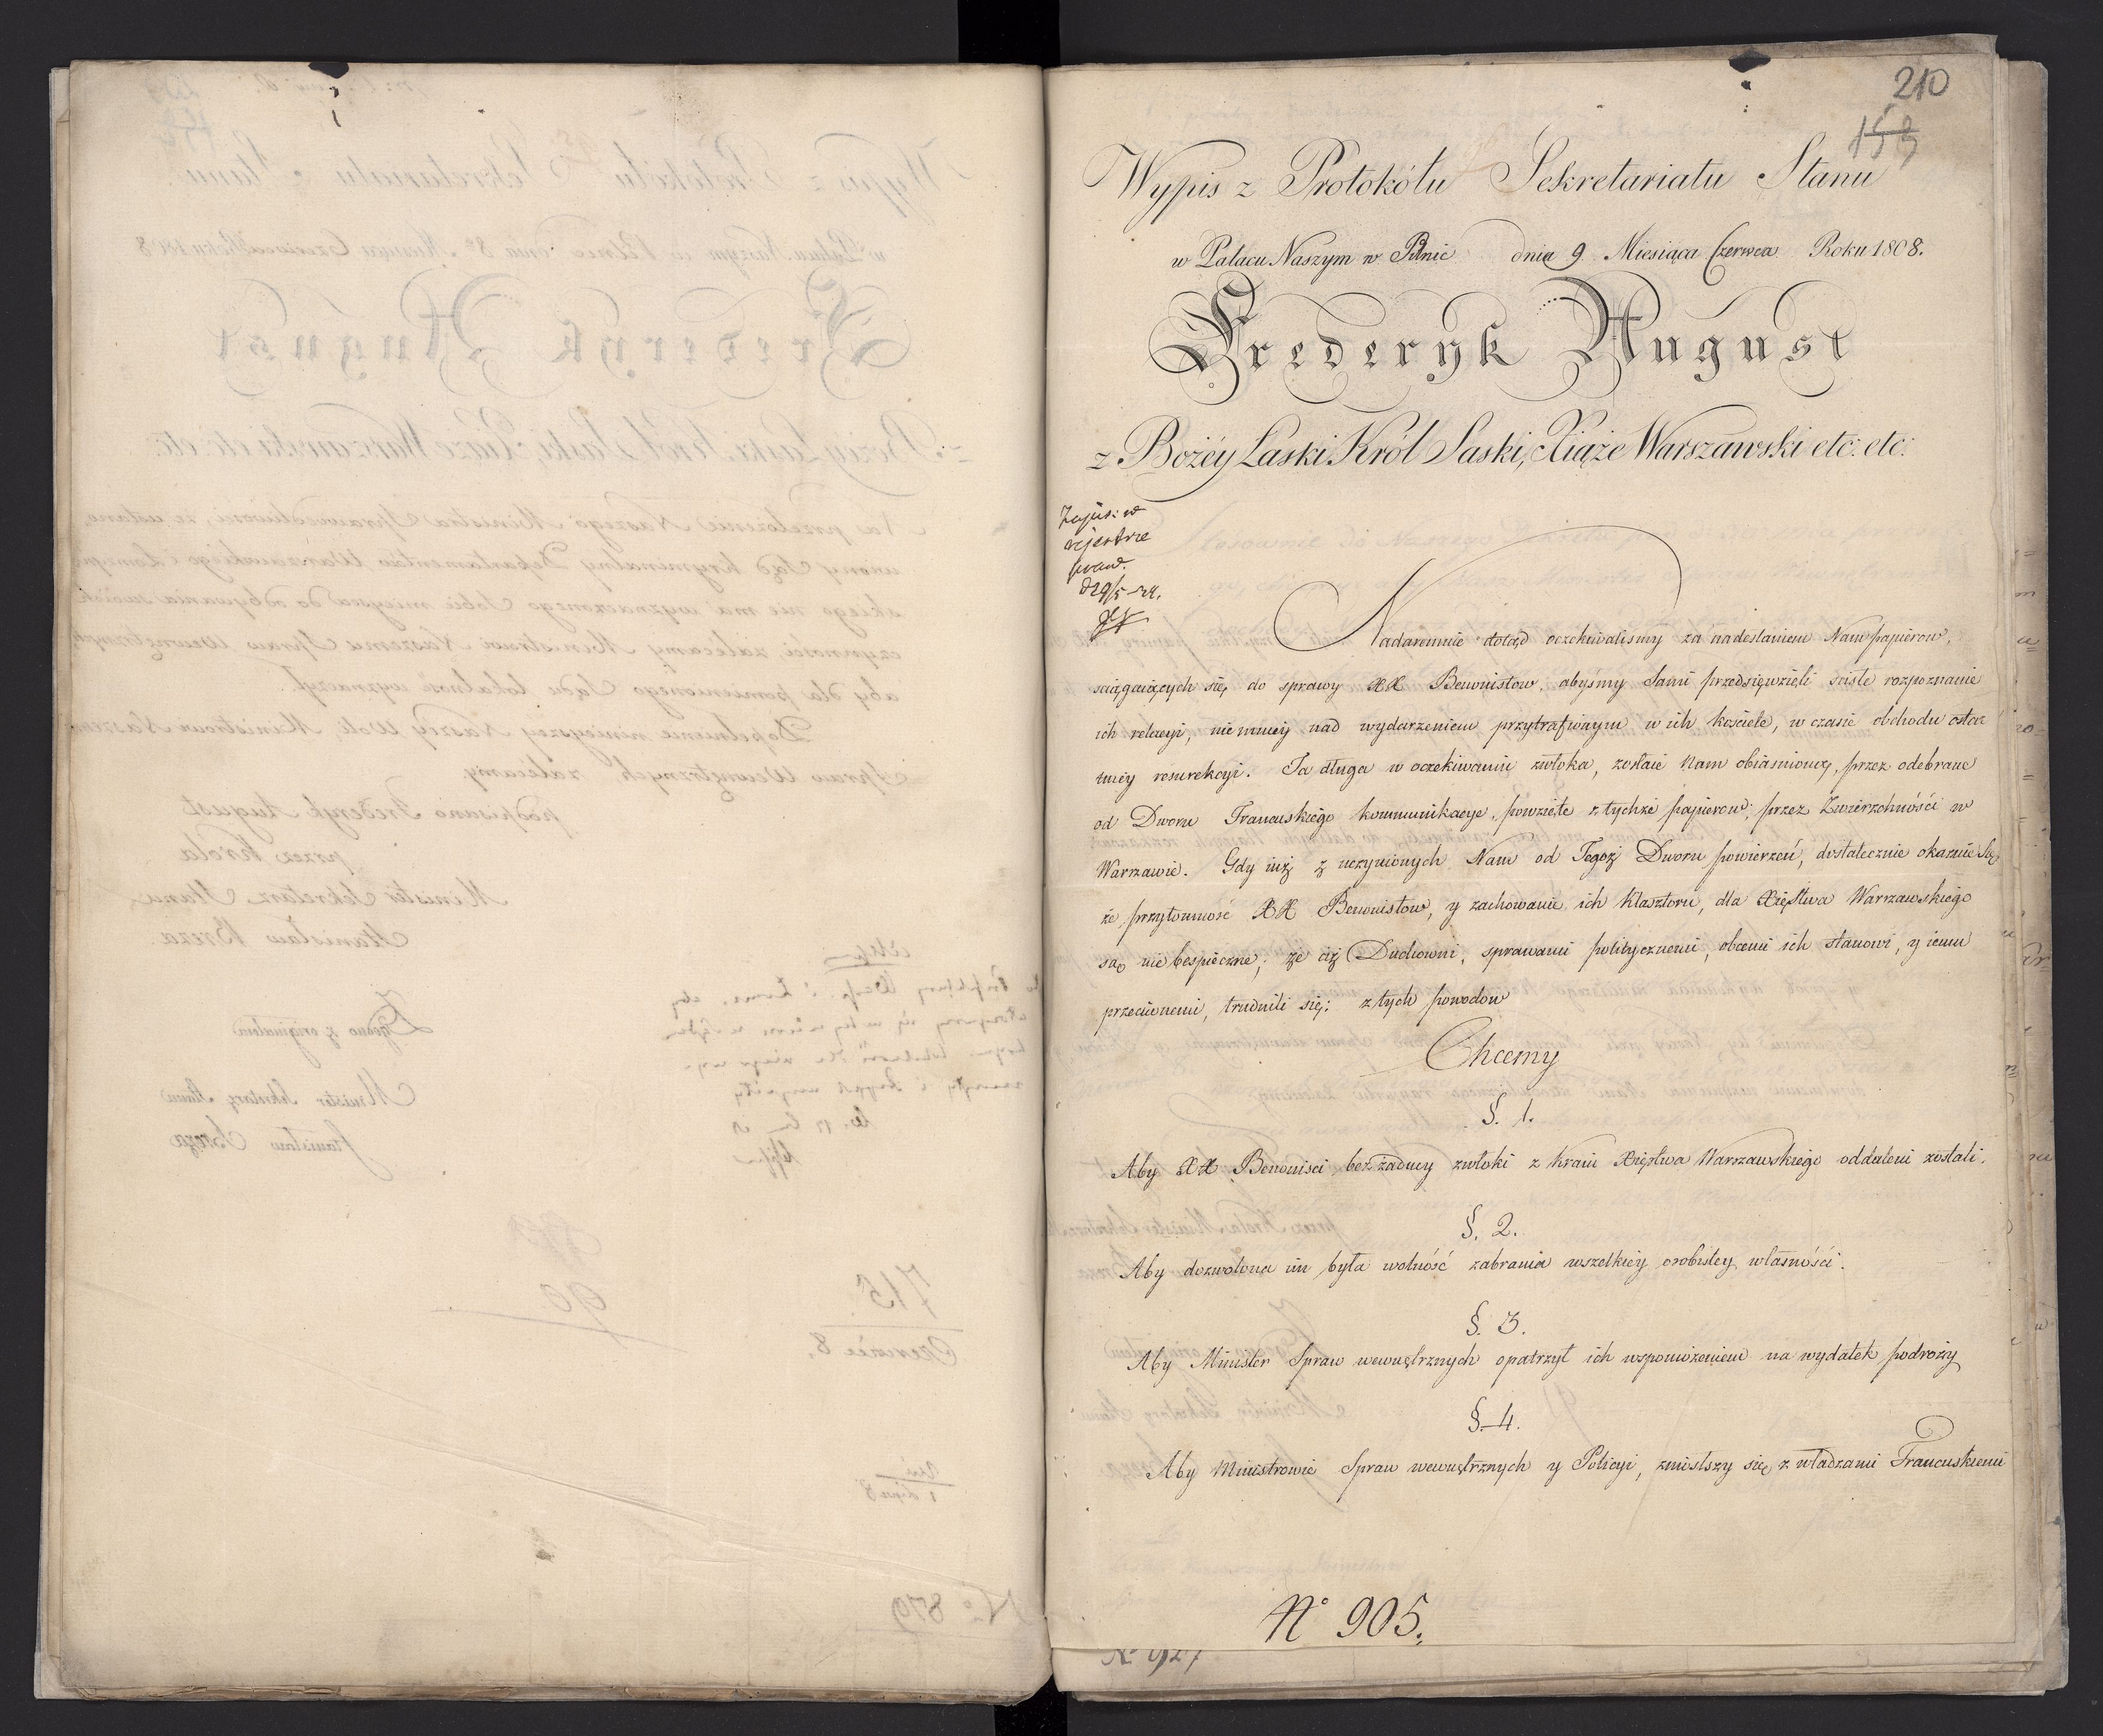 210
153
Wypis z Protokółu Sekretariatu Stanu
w Pałacu Naszym w Pilnic dnia 9 Miesiąca Czerwca Roku 1808.
Frederyk August
z Bożéy Łaski Król Saski, Xiąże Warszawski etc: etc:
Zapis: w
rejestrze
Nadaremnie dotąd oczekiwalismy za nadesłaniem Nam papierow,
sciągaiących się do sprawy XX Benonistow, abyśmy Sami przedsięwzięli scisłe rozpoznanie
ich relacyi, nie mniey nad wydarzeniem przytrafionym w ich kosciele, w czasie obchodu ostat
tniey resurekcyi. Ta długa w oczekiwaniu zwłoka, zostaie Nam obiasnioną, przez odebrane
od Dworu Francuskiego kommunikacye, powzięte z tychże papierow, przez Zwierzchność́i w
Warzawie. Gdy iuż z uczynionych Nam od Tegoż Dworu powierzeń, dostatecznie okazuie Się
że przytomność XX Benonistow, y zachowanie ich Klasztoru, dla Xięstwa Warzawskiego
są nie bespieczne; że ciż Duchowni, sprawami politycznemi, obcemi ich stanowi, y iemu
przeciwnemi, trudnili się: z tych powodow
Chcemy
§. 1.
Aby XX Benonisci bez żadney zwłoki z Kraiu Xięstwa Warszawskiego oddaleni zostali.
§. 2.
Aby dozwolona im była wolność zabrania wszelkiey osobistey własnośći.
§. 3.
Aby Minister Spraw wewnętrznych opatrzył ich wspomożeniem na wydatek podroży
§. 4.
Aby Ministrowie Spraw wewnętrznych y Policyi, zniosłszy się z władzami Francuskiemi
N° 905.
N° 927